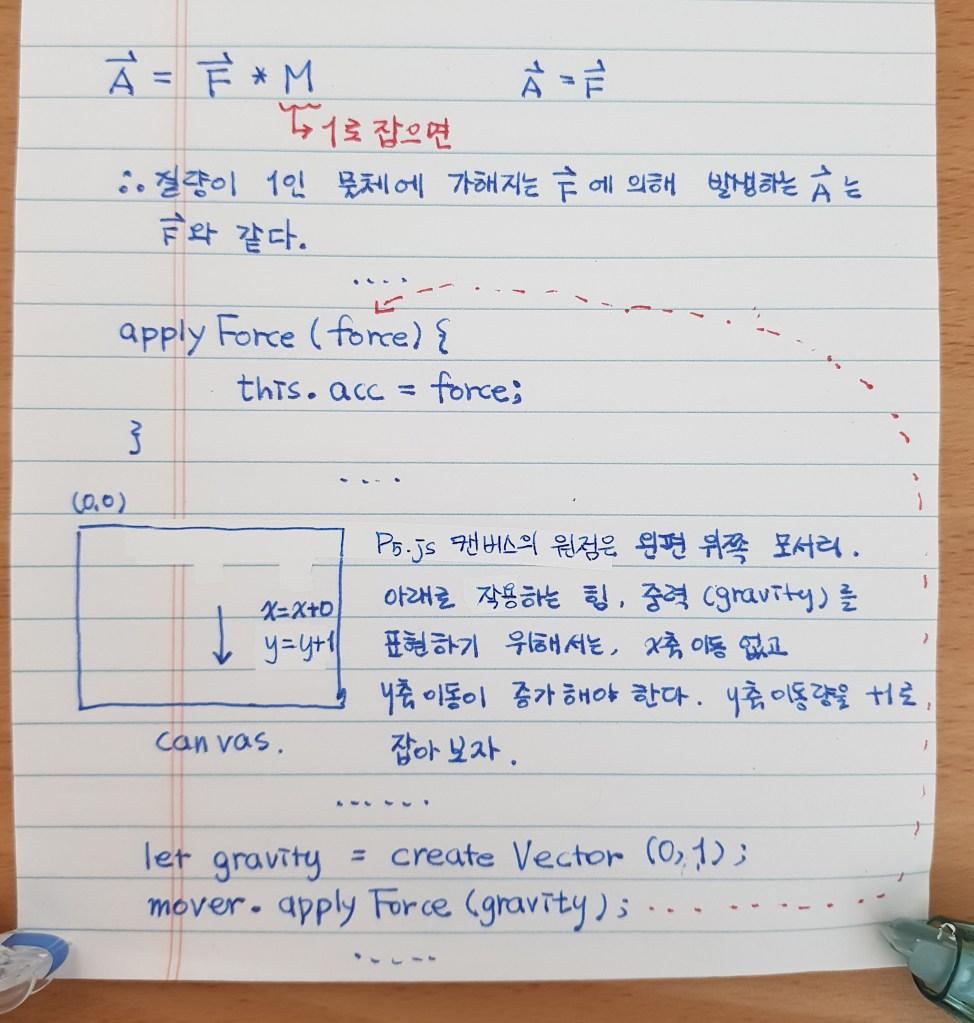 A = F * M
A = F
1로 잡으면
∴ 질량이 1인 물체에 가해지는 F에 의해 발생하는 A는
F와 같다.
.....
applyForce (force) {
this.acc = force;
}
....
(0,0)
P5.js 캔버스의 원점은 왼편 위쪽 모서리.
아래로 작용하는 힘, 중력 (gravity)를
x=x+0
표현하기 위해서는, x축 이동 없고
y=y+1
y축 이동이 증가해야 한다. y축 이동량을 +1로
canvas.
잡아 보자.
......
let gravity = createVector (0,1);
mover.applyForce (gravity);
.....